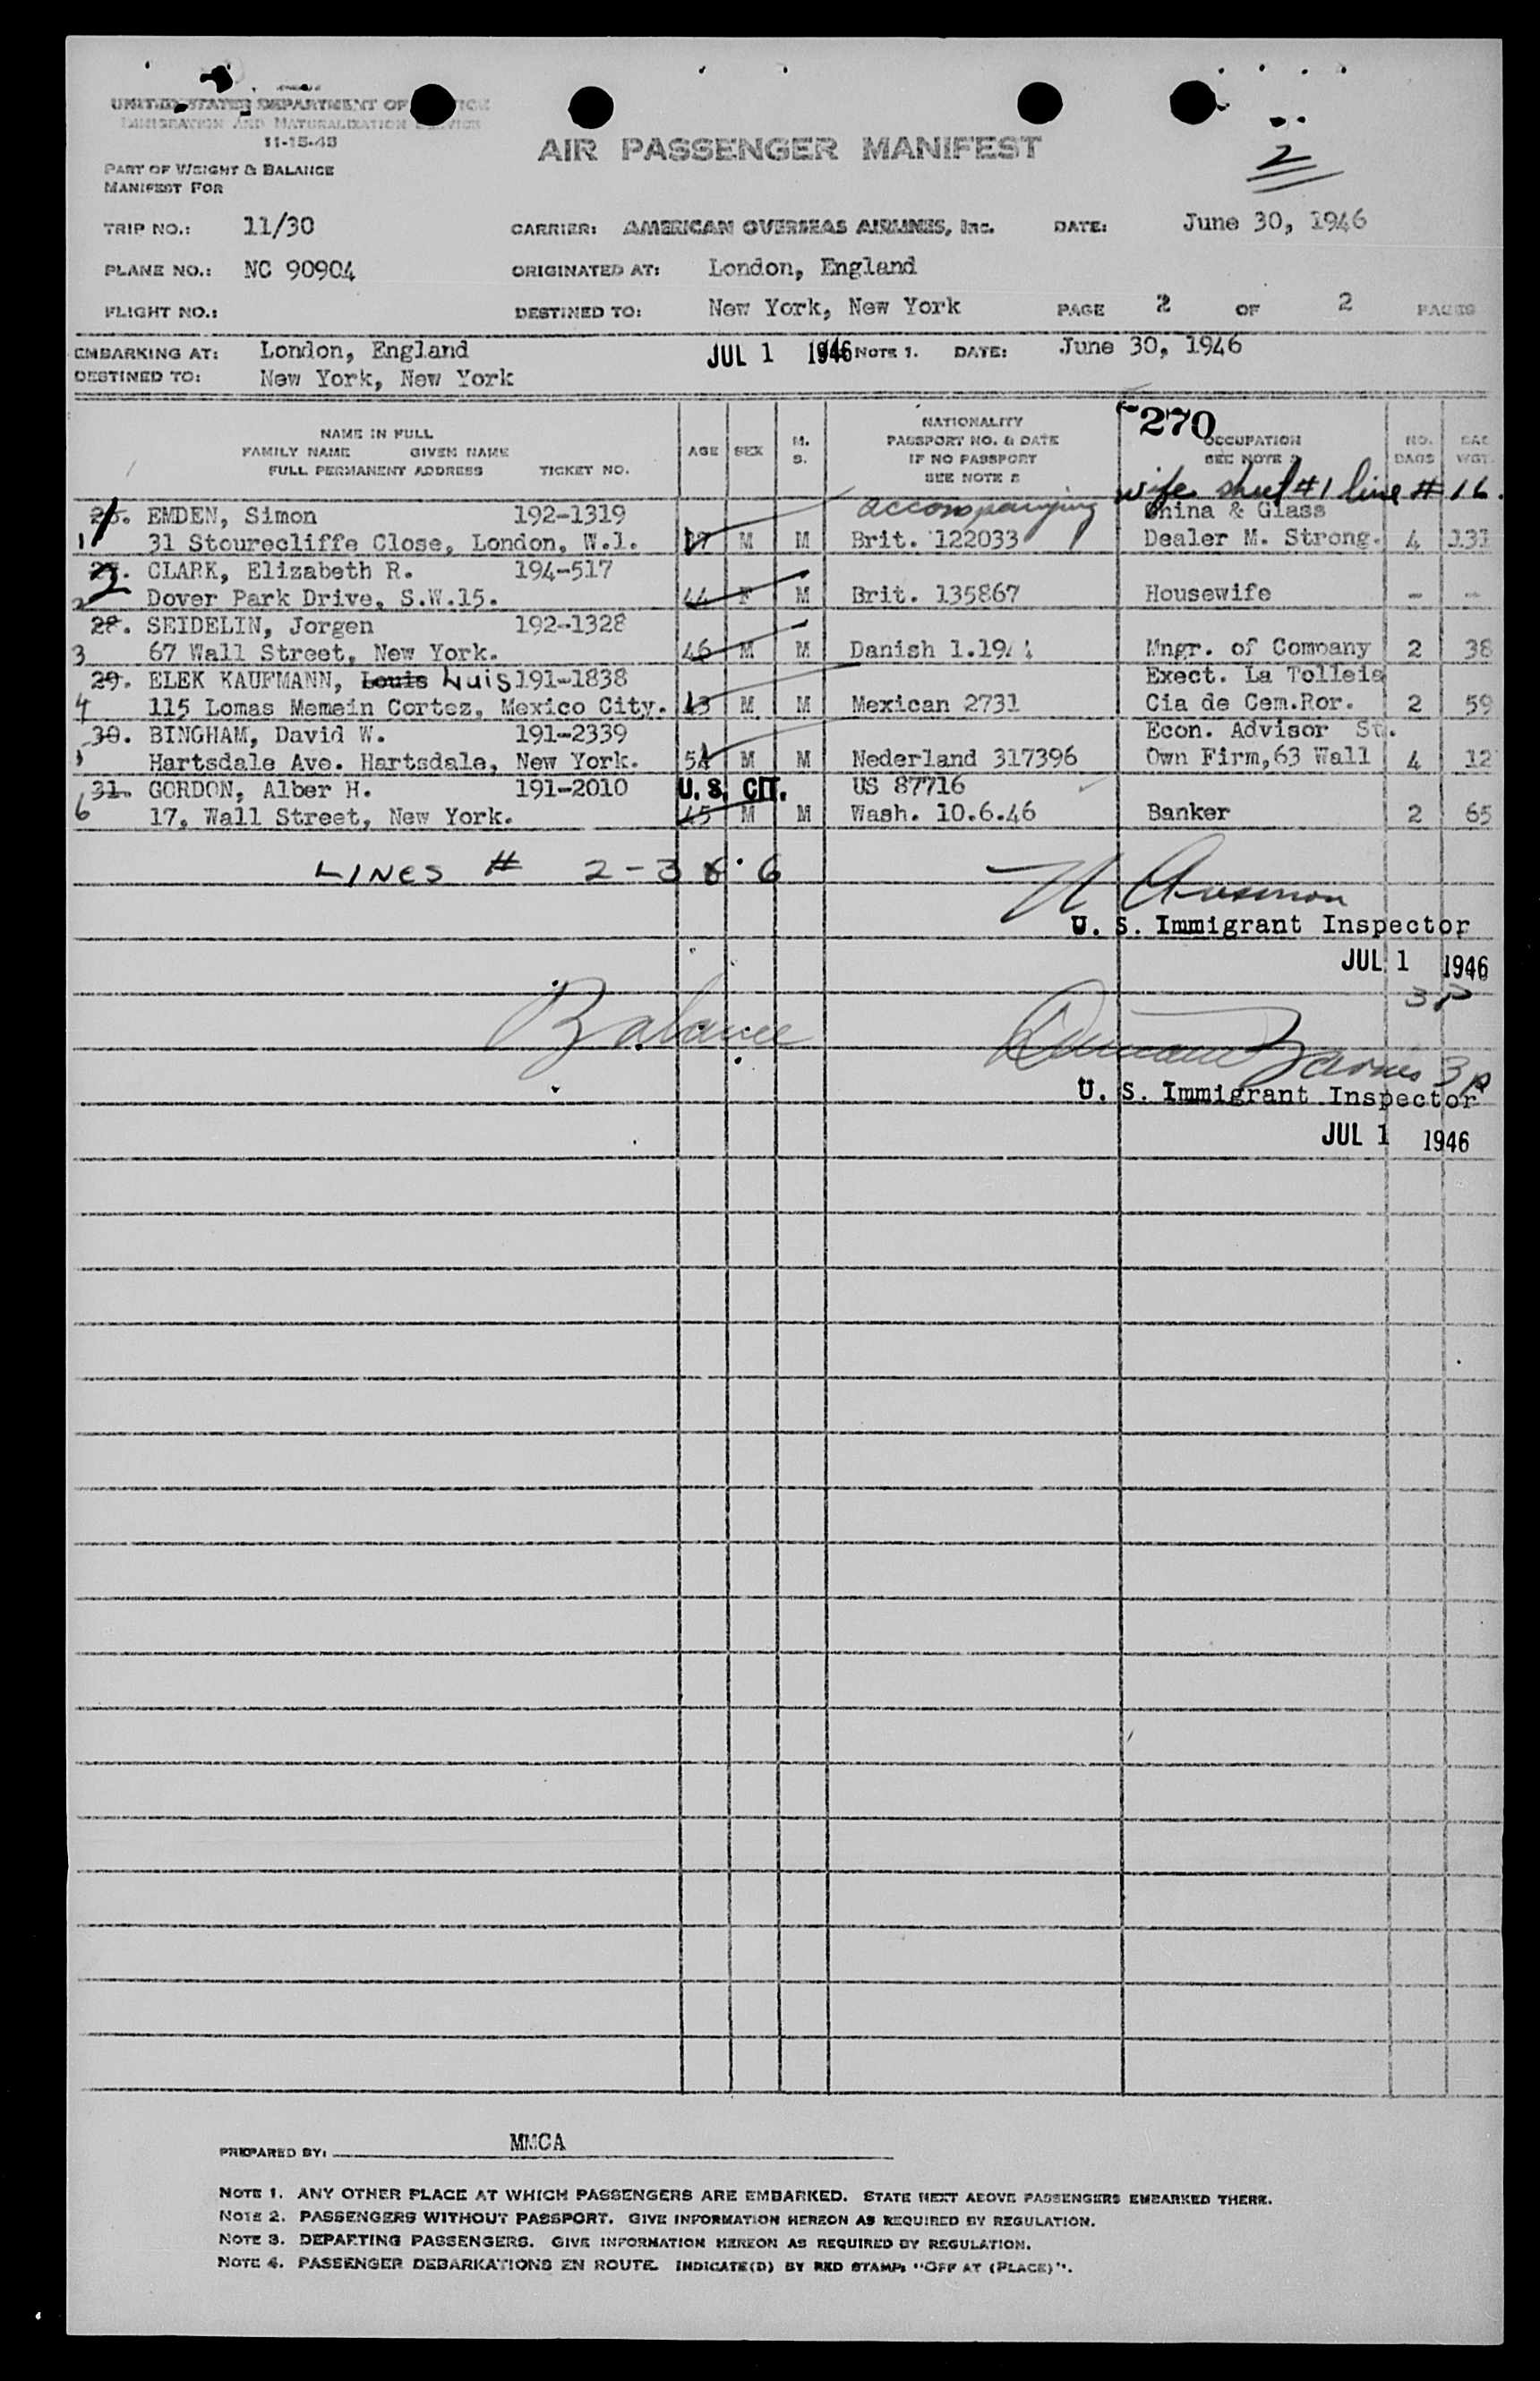 UNITED STATES DEPARTMENT OF
IMMIGRATION AND NATURALIZATION SERVICE
11-15-43
AIR PASSENGER MANIFEST
2
PART OF WEIGHT & BALANCE
MANIFEST FOR
TRIP NO.: 11/30 CARRIER: AMERICAN OVERSEAS AIRLINES, Inc. DATE: June 30, 1946
PLANE NO.: NC 90904 ORIGINATED AT: London, England
FLIGHT NO.: DESTINED TO: New York, New York PAGE 2 OF 2 PAGES
EMBARKING AT: London, England JUL 1 1946 NOTE 1. DATE: June 30, 1946
DESTINED TO: New York, New York
270
NAME IN FULL
FAMILY NAME GIVEN NAME
FULL PERMANENT ADDRESS TICKET NO.
AGE SEX M. S.
NATIONALITY
PASSPORT NO. & DATE
IF NO PASSPORT
SEE NOTE 2
OCCUPATION
SEE NOTE
NO. BAGS
BAG WGT.
accompanying wife sheet #1 line #16.
EMDEN, Simon 192-1319 China & Glass
1 31 Stourecliffe Close, London, W.1. M M Brit. 122033 Dealer M. Strong. 4 131
2. CLARK, Elizabeth R. 194-517
2 Dover Park Drive, S.W.15. 44 F M Brit. 135867 Housewife - -
28. SEIDELIN, Jorgen 192-1328
3 67 Wall Street, New York. 46 M M Danish Mngr. of Company 2 38
29. ELEK KAUFMANN, Louis Luis 191-1838 Exect. La Tolleis
4 115 Lomas Memein Cortez, Mexico City. 43 M M Mexican 2731 Cia de Cem.Ror. 2 59
30. BINGHAM, David W. 191-2339 Econ. Advisor St.
Hartsdale Ave. Hartsdale, New York. 54 M M Nederland 317396 Own Firm,63 Wall 4 12
31. GORDON, Alber H. 191-2010 U. S. CIT. US 87716
6 17, Wall Street, New York. 45 M M Wash. 10.6.46 Banker 2 65
LINES # 2-3 & 6
U. S. Immigrant Inspector
JUL 1 1946
3P
Balance
3P
U. S. Immigrant Inspector
JUL 1 1946
PREPARED BY: MMCA
NOTE 1. ANY OTHER PLACE AT WHICH PASSENGERS ARE EMBARKED. STATE NEXT ABOVE PASSENGERS EMBARKED THERE.
NOTE 2. PASSENGERS WITHOUT PASSPORT. GIVE INFORMATION HEREON AS REQUIRED BY REGULATION.
NOTE 3. DEPARTING PASSENGERS. GIVE INFORMATION HEREON AS REQUIRED BY REGULATION.
NOTE 4. PASSENGER DEBARKATIONS EN ROUTE. INDICATE(D) BY RED STAMP: "OFF AT (PLACE)".